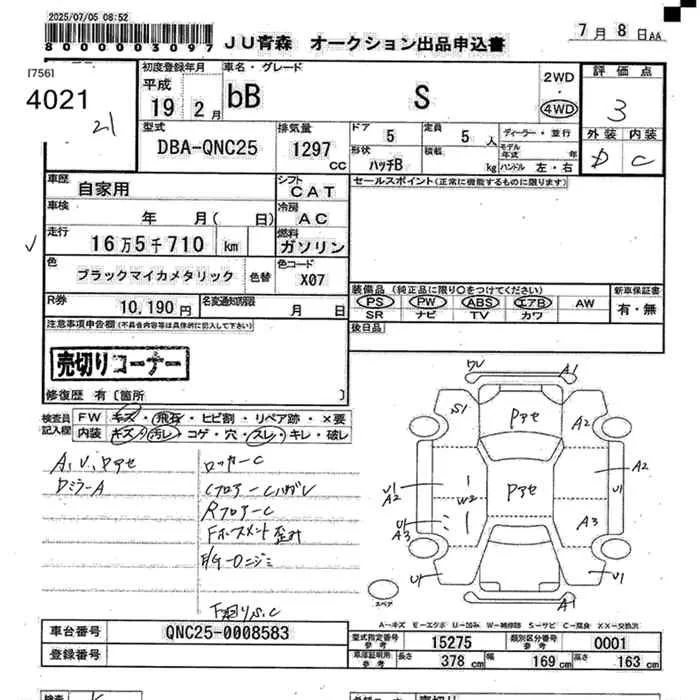 2025/07/05 08:52
8000003097
JU青森 オークション出品申込書
7月8日AA
[756]
4021
21
初度登録年月
平成
19 2月
車名・グレード
bB S
2WD
・
4WD
評価点
3
外装 内装
D C
型式
DBA-QNC25
排気量
1297
CC
ドア 5
形状
ハッチB
定員 5人
積載 kg
ディーラー・並行
モデル年式 年
ハンドル 左・右
車歴
自家用
シフト
CAT
車検
年 月( 日)
冷房
AC
走行
16万5千710 km
燃料
ガソリン
色
ブラックマイカメタリック
色替
色コード
X07
R券
10,190円
名変通知期限
月 日
セールスポイント(正常に機能するものに限ります)
装備品(純正品に限り○をつけてください)
PS PW ABS エアB AW
SR ナビ TV カワ
新車保証書
有・無
後日品
注意事項申告欄(不具合内容等は具体的に記入して下さい)
売切りコーナー
修復歴 有〔箇所 〕
検査員記入欄
FW キズ・飛石・ヒビ割・リペア跡・×要
内装 キズ・汚レ・コゲ・穴・スレ・キレ・破レ
A,U,Pアセ
Dミラ-A
ロッカーC
Rフロアー C
下回りS.C
A1
S1
Pアセ
A2
U1
A2
W2
Pアセ
A2
U1
U1
A3
A3
U1
U1
A1
スペア
A-キズ E-エクボ U-凹み W-補修跡 S-サビ C-腐食 XX-交換済
車台番号
QNC25-0008583
登録番号
型式指定番号
参考
15275
類別区分番号
参考
0001
車庫証明用
参考
長さ 378cm 幅 169cm 高さ 163cm